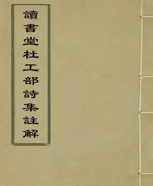 讀書堂杜工部詩集註解